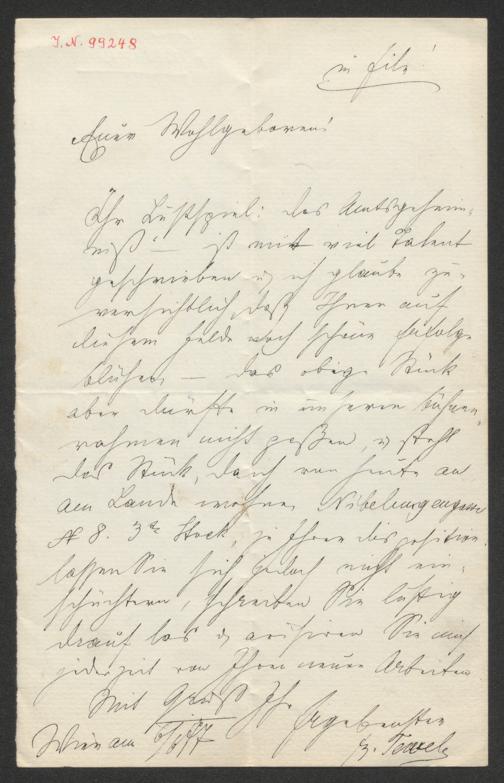 J.N. 99248
in Eile!
Euer Wohlgeboren!
Ihr Lustspiel: das Amtsgeheim-
niß" – ist mit viel Talent
geschrieben u ich glaube zu-
versichtlich, daß Ihnen auf
diesem Felde noch schöne Erfolge
blühen. – Das obige Stück
aber dürfte in unseren Bühnen-
rahmen nicht passen, u steht
das Stück, da ich von heute an
am Lande wohne, Nibelungengasse
№ 8. 3te Stock, zu Ihrer disposition.
lassen Sie sich jedoch nicht ein-
schüchtern, schreiben Sie lustig
drauf los u avisiren Sie mich
jederzeit von Ihren neuen Arbeiten
Mit Gruß Ihr
Ergebenster
Wien am
F. Tewele